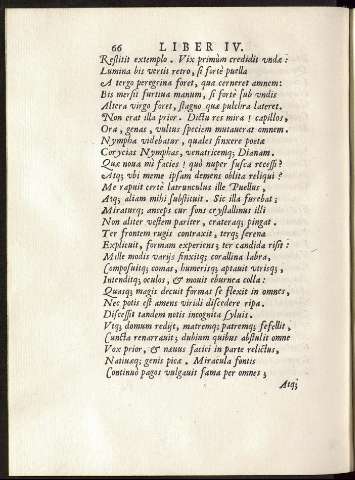 66 LIBER IV.
Restitit extemplo. Vix primùm credidit vndæ:
Lumina bis vertit retro, si fortè puella
A tergo peregrina foret, qua cerneret amnem:
Bis mersit furtiua manum, si fortè sub vndis
Altera virgo foret, stagno quæ pulchra lateret.
Non erat illa prior. Dictu res mira! capillos,
Ora, genas, vultus speciem mutauerat omnem.
Nympha videbatur, quales finxere poetæ
Corycias Nymphas, venatricemq; Dianam.
Quæ noua mi facies! quò nuper fusca recessi?
Atq; vbi meme ipsam demens oblita reliqui?
Me rapuit certè latrunculus ille Puellus,
Atq; aliam mihi substituit. Sic illa furebat;
Miraturq; anceps cur fons crystallinus illi
Non aliter vestem pariter, crateraq; pingat.
Ter frontem rugis contraxit, terq; serena
Explicuit, formam experiens; ter candida risit:
Mille modis varijs finxitq; corallina labra,
Composuitq; comas, humerisq; aptauit vtrisq;,
Intenditq; oculos, & mouit eburnea colla:
Quasq; magis decuit formas se flexit in omnes,
Nec potis est amens viridi discedere ripa.
Discessit tandem notis incognita Lyluis.
Vtq; domum redijt, matremq; patremq; fefellit,
Cuncta renarrauit; dubium quibus abstulit omne
Vox prior, & næuus faciei in parte relictus,
Natiuæq; genis picæ. Miracula fontis
Continuò pagos vulgauit fama per omnes;
Atq;